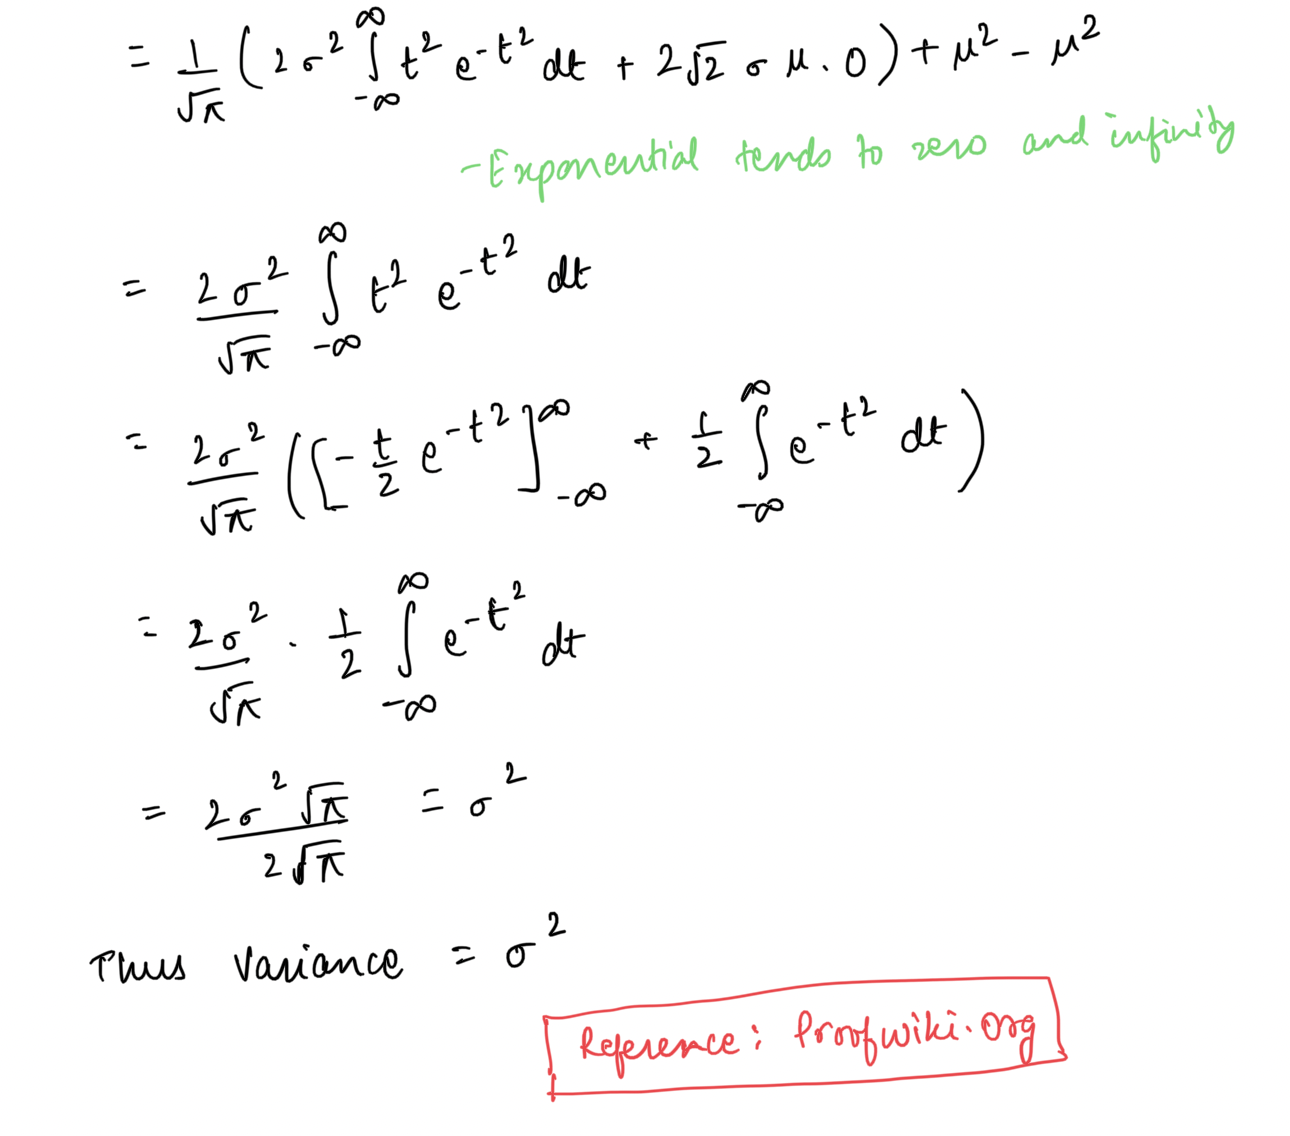 = 1/√π ( 2σ² ∫_{-∞}^{∞} t² e^{-t²} dt + 2√2 σ μ . 0 ) + μ² - μ²
- Exponential tends to zero and infinity
= 2σ²/√π ∫_{-∞}^{∞} t² e^{-t²} dt
= 2σ²/√π ( [ - t/2 e^{-t²} ]_{-∞}^{∞} + 1/2 ∫_{-∞}^{∞} e^{-t²} dt )
= 2σ²/√π . 1/2 ∫_{-∞}^{∞} e^{-t²} dt
= 2σ²√π / 2√π = σ²
Thus Variance = σ²
Reference: Proofwiki.org